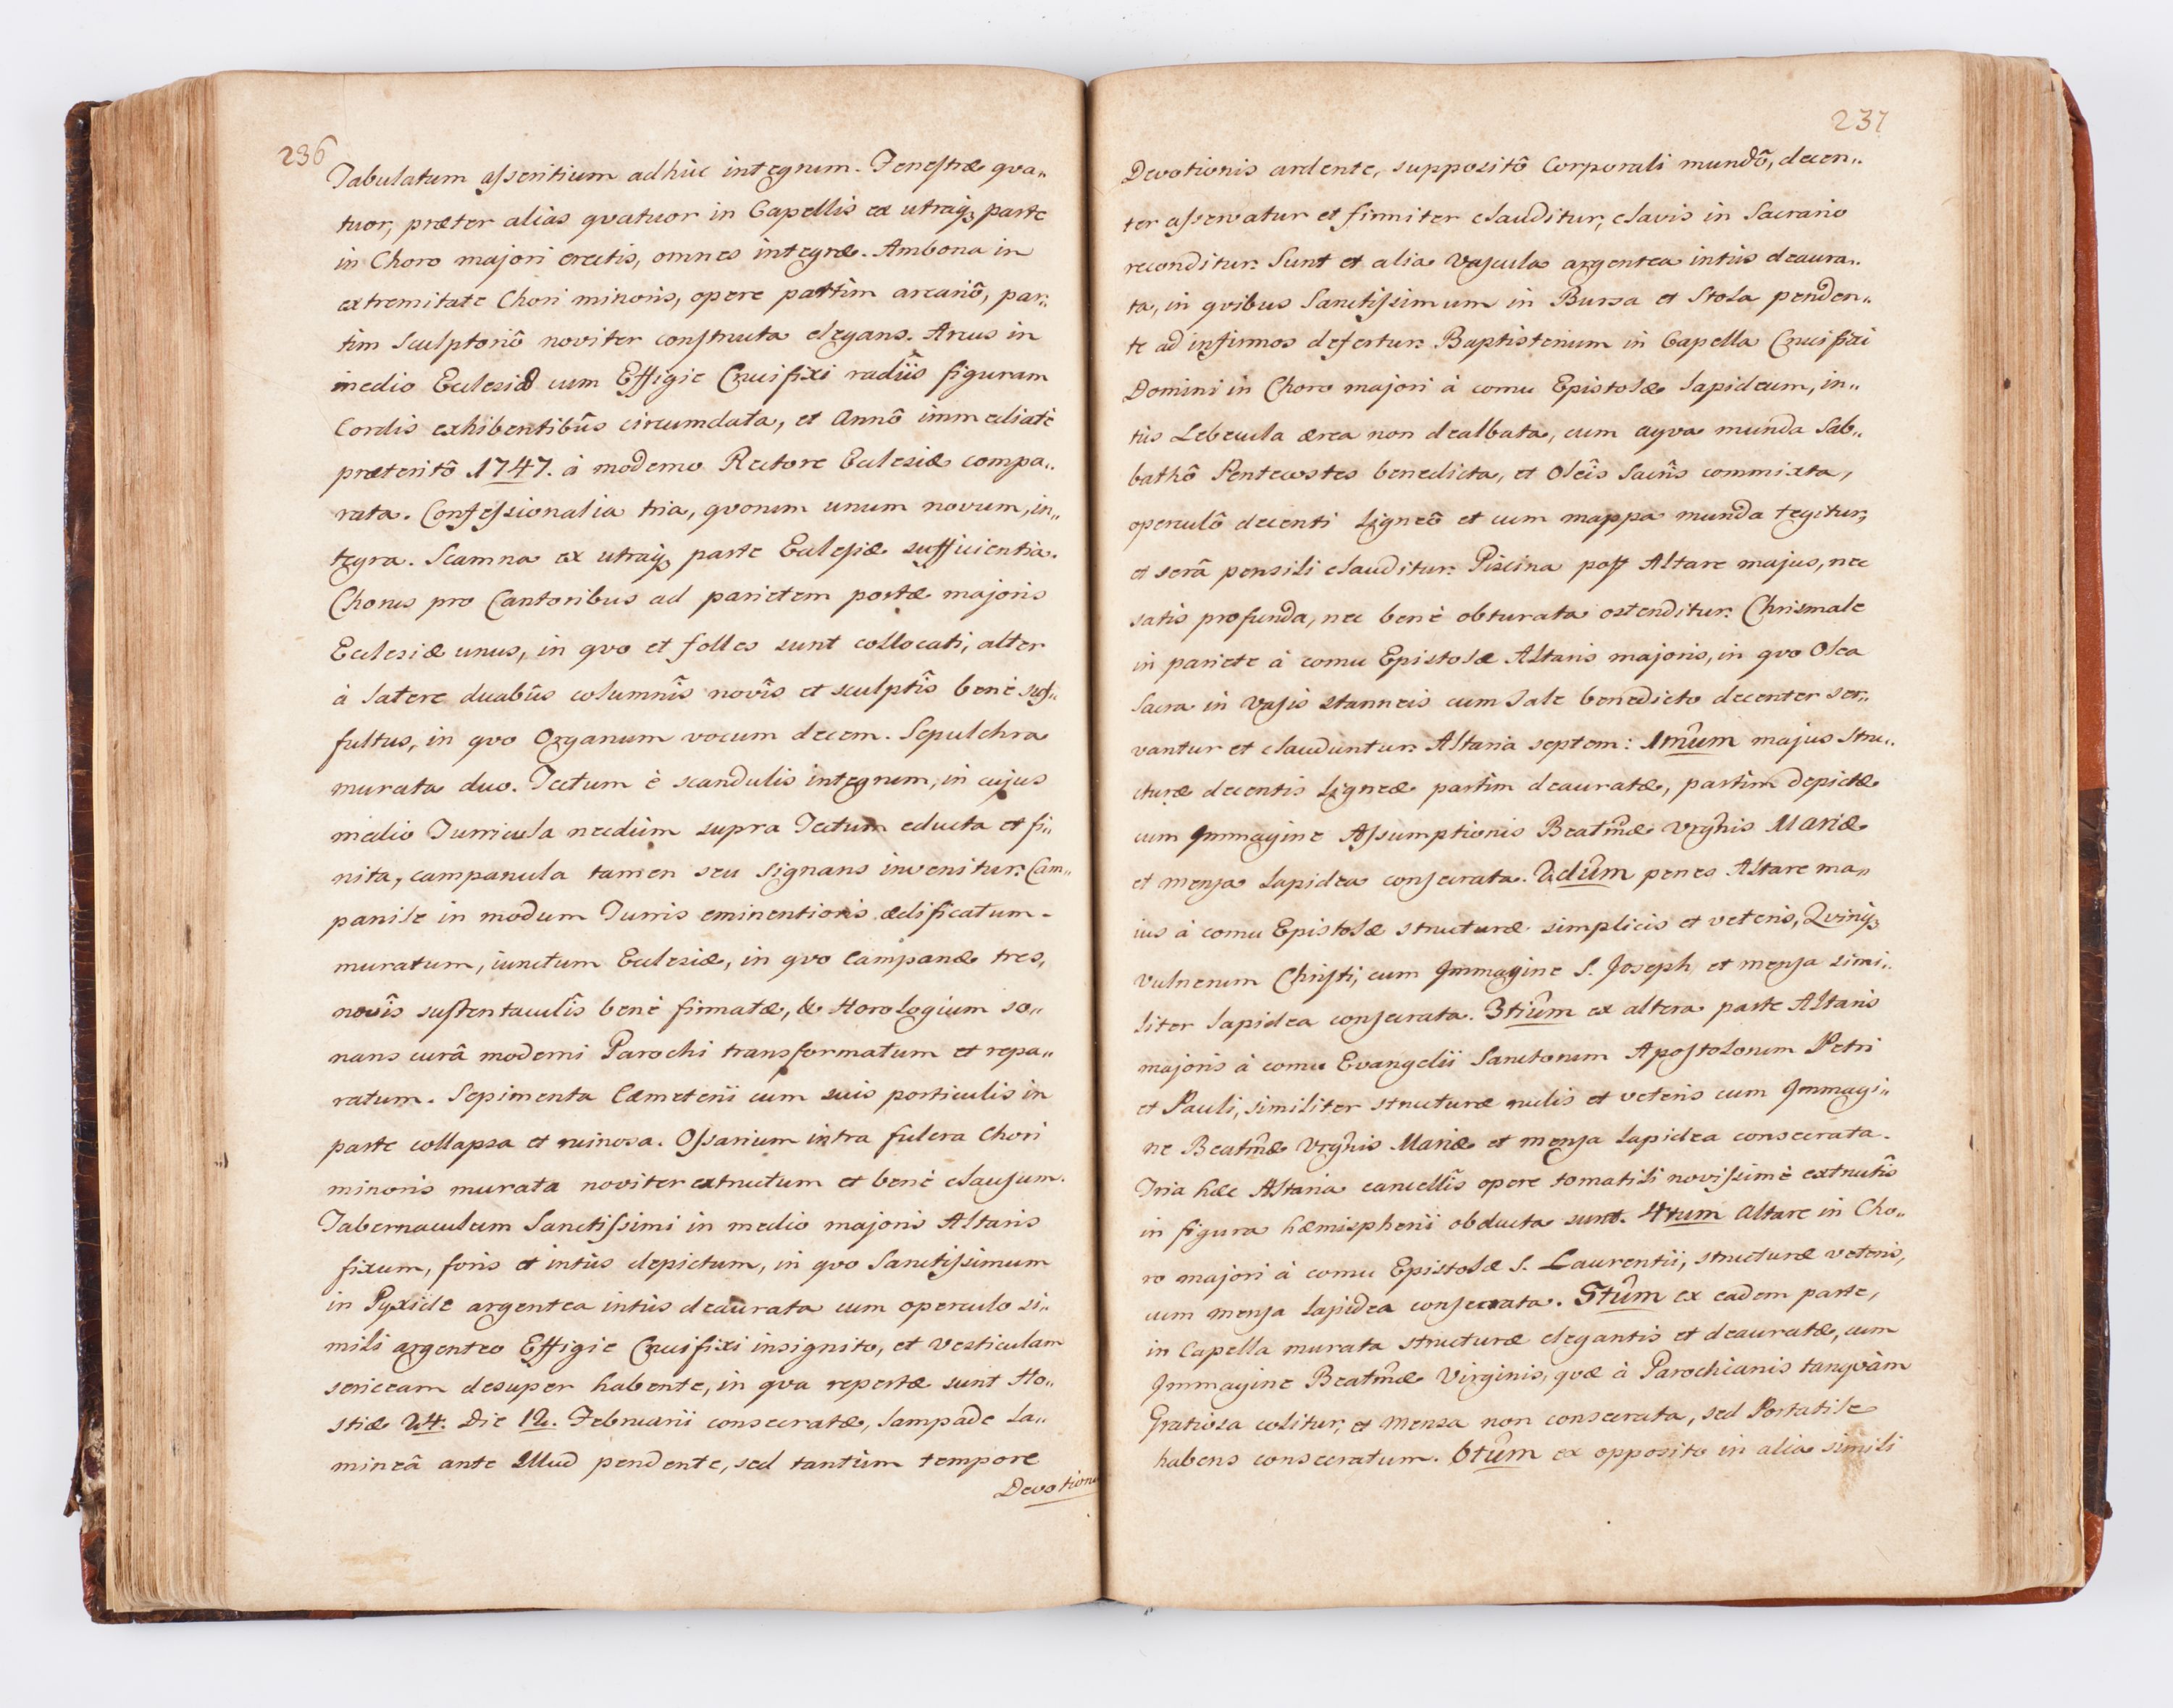 236
Tabulatum asseritium adhùc integrum. Fenestræ qva„
tuor, præter alias qvatuor in Capellis ex utraq; parte
in Choro majori erectis, omnes integræ. Ambona in
extremitate Chori minoris, opere partìm arcariô, par„
tìm Sculptoriô noviter constructa elegans. Arcus in
medio Ecclesiæ cum Effigie Crucifixi radiîs figuram
Cordis exhibentibûs circumdata, et Annô immediatè
præteritô 1747. à moderno Rectore Ecclesiæ compa„
rata. Confessionalia tria, qvorum unum novum, in„
tegra. Scamna ex utraq; parte Ecclesiæ sufficientia.
Chorus pro Cantoribus ad parietem portæ majoris
Ecclesiæ unus, in qvo et folles sunt collocati, alter
à latere duabûs columnîs novîs et sculptîs benè suf„
fultus, in qvo Organum vocum decem. Sepulchra
murata duo. Tectum è scandulis integrum, in cujus
medio Turricula necdùm supra Tectum educta et fi„
nita, campanula tamen seu signans invenitur. Cam„
panile in modum Turris eminentioris ædificatum
muratum, iunctum Ecclesiæ, in qvo Campanæ tres,
novîs sustentaculîs benè firmatæ, & Horologium so„
nans curâ moderni Parochi transformatum et repa„
ratum. Sepimenta Cæmeterii cum suis porticulis in
parte collapsa et ruinosa. Ossarium intra fulcra Chori
minoris murata noviter extructum et benè clausum.
Tabernaculum Sanctissimi in medio majoris Altaris
fixum, foris et intùs depictum, in qvo Sanctissimum
in Pyxide argentea intùs deaurata cum operculo si„
mili argenteo Effigie Crucifixi insignito, et Vesticulam
sericeam desuper habente, in qva repertæ sunt Ho„
stiæ 24. Die 12. Februarii consecratæ, Lampade La„
mineâ ante Illud pendente, sed tantùm tempore
Devotionis
237
Devotionis ardente, suppositô Corporali mundô, decen„
ter asservatur et firmiter clauditur, clavis in Sacrario
reconditur. Sunt et alia Vascula argentea intùs deaura„
ta, in qvibus Sanctissimum in Bursa et Stola penden„
te ad infirmos defertur. Baptisterium in Capella Crucifixi
Domini in Choro majori à cornu Epistolæ lapideum, in„
tùs Lebecula ærea non dealbata, cum aqva munda Sab„
bathô Pentecostes benedicta, et Oleîs Sacrîs commixta,
operculô decenti Ligneô et cum mappa munda tegitur,
et serâ pensili clauditur. Piscina post Altare majus, nec
satis profunda, nec benè obturata ostenditur. Chrismale
in pariete à cornu Epistolæ Altaris majoris, in qvo Olea
Sacra in Vasis stanneis cum Sale benedicto decenter ser„
vantur et clauduntur. Altaria septem: 1mûm majus Stru„
cturæ decentis Ligneæ partìm deauratæ, partìm depictæ
cum Immagine Assumptionis Beatmæ Vrgnis Mariæ
et mensa Lapidea consecrata. 2dûm penes Altare ma„
ius à cornu Epistolæ structuræ simplicis et veteris, Qvinq;
Vulnerum Christi, cum Immagine S. Joseph, et mensa simi„
liter lapidea consecrata. 3tiûm ex altera parte Altaris
majoris à cornu Evangelii Sanctorum Apostolorum Petri
et Pauli, similiter structuræ rudis et veteris cum Immagi„
ne Beatmæ Vrgnis Mariæ et mensa Lapidea consecrata.
Tria hæc Altaria cancellîs opere tornatili novissimè extructîs
in figura hæmispherii obducta sunt. 4tum Altare in Cho„
ro majori à cornu Epistolæ S. Laurentii, structuræ veteris,
cum mensa Lapidea consecrata. 5tûm ex eadem parte,
in Capella murata structuræ elegantis et deauratæ, cum
Immagine Beatmæ Virginis, qvæ à Parochianis tanqvàm
Gratiosa colitur, et Mensa non consecrata, sed Portatile
habens consecratum. 6tûm ex opposito in alia simili